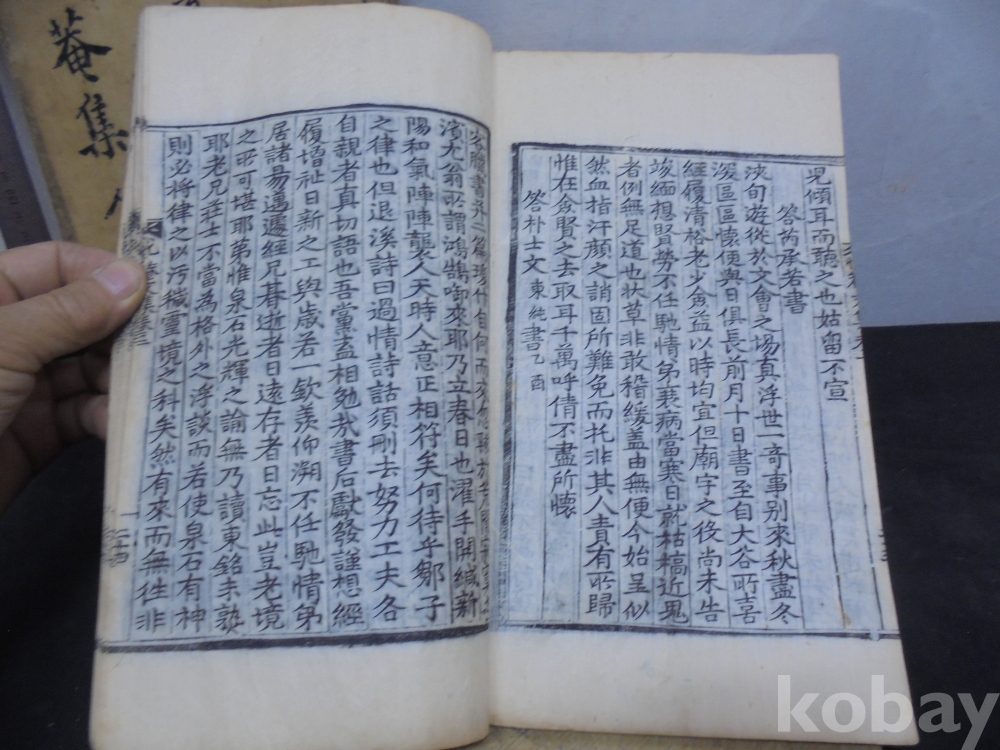 兒傾耳而聽之也姑留不宣
答芮承若書
浹旬遊從於文會之場真浮世一奇事別來秋盡冬
深區區懷仰與日俱長前月十日書至自大谷所喜
經履淸裕老少僉益以時均宜但廟宇之役尚未告
竣緬想賢勞不任馳情弟衰病當寒日就枯槁近鬼
者例無足道也狀草非敢稽緩盖由無便今始呈似
然血指汗顔之誚固所難免而托非其人責有所歸
惟在僉賢之去取耳千萬呼倩不盡所懷
答朴士文東純書乙酉
濱尤翁所謂鴻鵠啣來耶乃立春日也濯手開緘新
陽和氣陣陣襲人天時人意正相符矣何待乎鄒子
之律也但退溪詩曰過情詩話須刪去努力工夫各
自親者真切語也吾黨盍相勉哉書后獻發謹想經
履增祉日新之工與歲若一欽羨仰溯不任馳情弟
居諸易邁遽經兄朞逝者日遠存者日忘此豈老境
之所可堪耶第惟泉石光輝之論無乃讀東銘未熟
耶老兄莊士不當為格外之浮談而若使泉石有神
則必將律之以汚穢靈境之科矣然有來而無往非
二十四
菴集
kobay